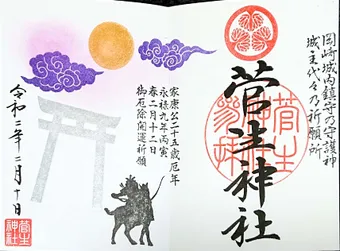 岡崎城内鎮守乃守護神
城主代々乃祈願所
菅生神社
菅生神社参拝
家康公二十五歳厄年
永禄九年丙寅
春二月十二日
御厄除開運祈願
令和二年二月十日
菅生神社